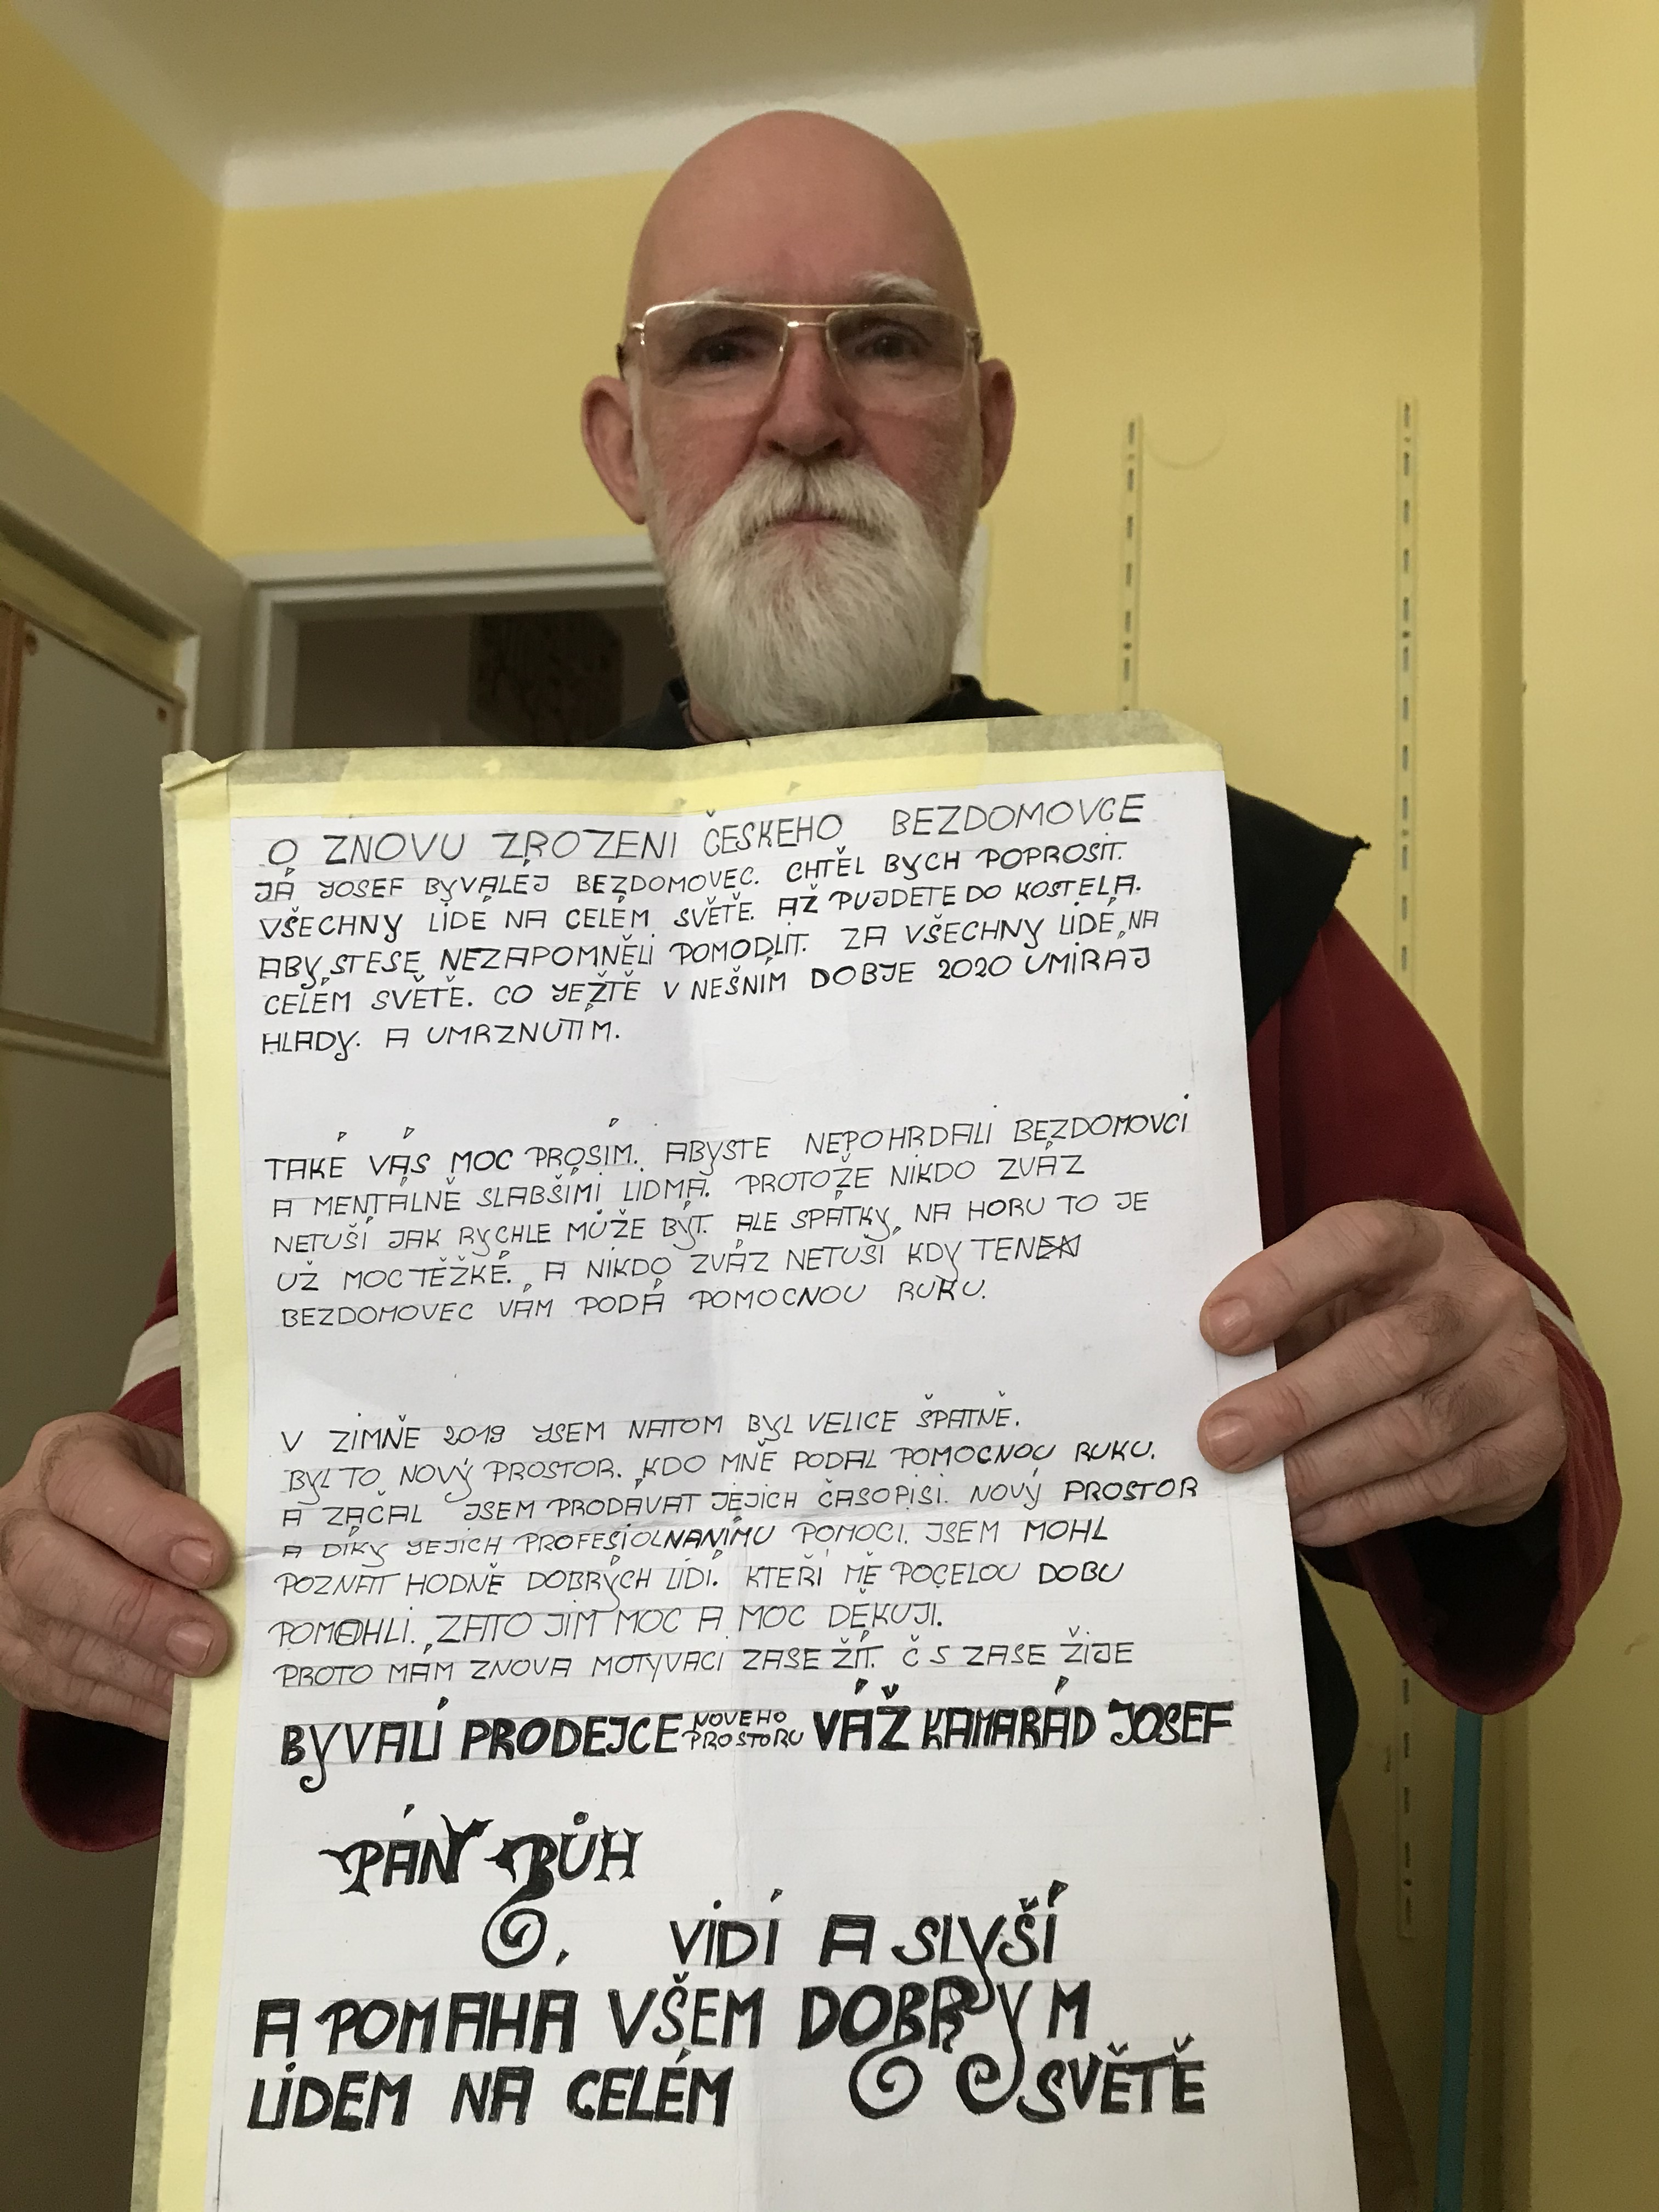 O ZNOVU ZROZENI ČESKEHO BEZDOMOVCE
JÁ JOSEF BYVALEJ BEZDOMOVEC. CHTĚL BYCH POPROSIT.
VŠECHNY LIDÉ NA CELÉM SVĚTĚ. AŽ PUJDETE DO KOSTELA.
ABY STESE NEZAPOMNĚLI POMODLIT. ZA VŠECHNY LIDÉ NA
CELÉM SVĚTĚ. CO JEŽTĚ V NEŠNIM DOBJE 2020 UMÍRAJ
HLADY. A UMRZNUTIM.
TAKÉ VÁS MOC PROSÍM. ABYSTE NEPOHRDALI BEZDOMOVCI
A MENTÁLNĚ SLABŠIMI LIDMA. PROTOŽE NIKDO ZVÁZ
NETUŠÍ JAK RYCHLE MŮŽE BÝT. ALE SPÁTKY NA HORU TO JE
UŽ MOC TĚŽKÉ. A NIKDO ZVÁZ NETUŠÍ KDY TEN
BEZDOMOVEC VÁM PODÁ POMOCNOU RUKU.
V ZIMNĚ 2019 JSEM NATOM BYL VELICE ŠPATNĚ.
BYL TO NOVÝ PROSTOR. KDO MNĚ PODAL POMOCNOU RUKU.
A ZAČAL JSEM PRODÁVAT JEJICH ČASOPISI. NOVÝ PROSTOR
A DÍKY JEJICH PROFESIOLNANÍMU POMOCI. JSEM MOHL
POZNAT HODNĚ DOBRÝCH LIDÍ. KTEŘI MĚ POCELOU DOBU
POMOHLI. ZATO JIM MOC A MOC DĚKUJI.
PROTO MÁM ZNOVA MOTYVACI ZASE ŽÍT. Č S ZASE ŽIJE
BYVALÍ PRODEJCE NOVEHO PROSTORU VÁŽ KAMARÁD JOSEF
PÁN BŮH
VIDÍ A SLYŠÍ
A POMAHA VŠEM DOBRYM
LIDEM NA CELÉM SVĚTĚ